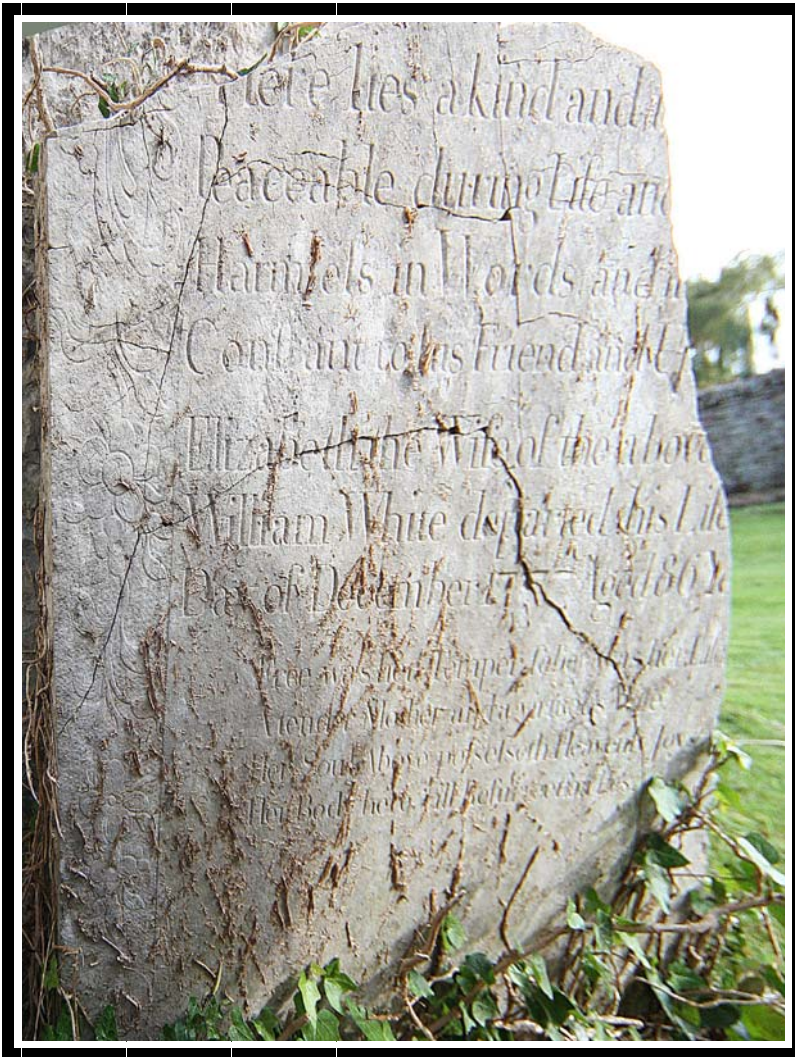 Here lies a kind and
Peaceable during Life and
Harmless in Words and in
Constant to his Friend and
Elizabeth the Wife of the above
William White departed this Life
Day of December Aged 86 Ye
Free was her Temper sober was her Life
Tender Mother and a virtuous Wife
Her Soul Above possesseth Heavenly Joys
Her Body here till